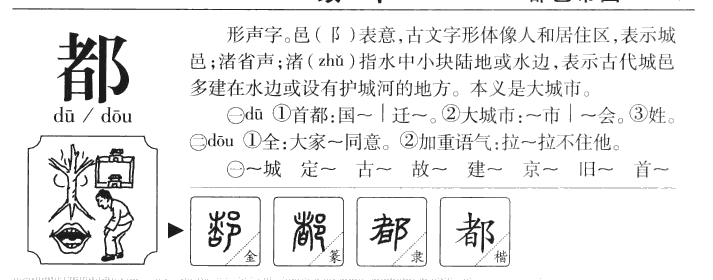 都
dū / dōu
形声字。邑(阝)表意,古文字形体像人和居住区,表示城
邑;渚省声;渚(zhǔ)指水中小块陆地或水边,表示古代城邑
多建在水边或设有护城河的地方。本义是大城市。
㊀dū ①首都:国～｜迁～。②大城市:～市｜～会。③姓。
㊁dōu ①全:大家～同意。②加重语气:拉～拉不住他。
㊀～城 定～ 古～ 故～ 建～ 京～ 旧～ 首～
都 金
都 篆
都 隶
都 楷